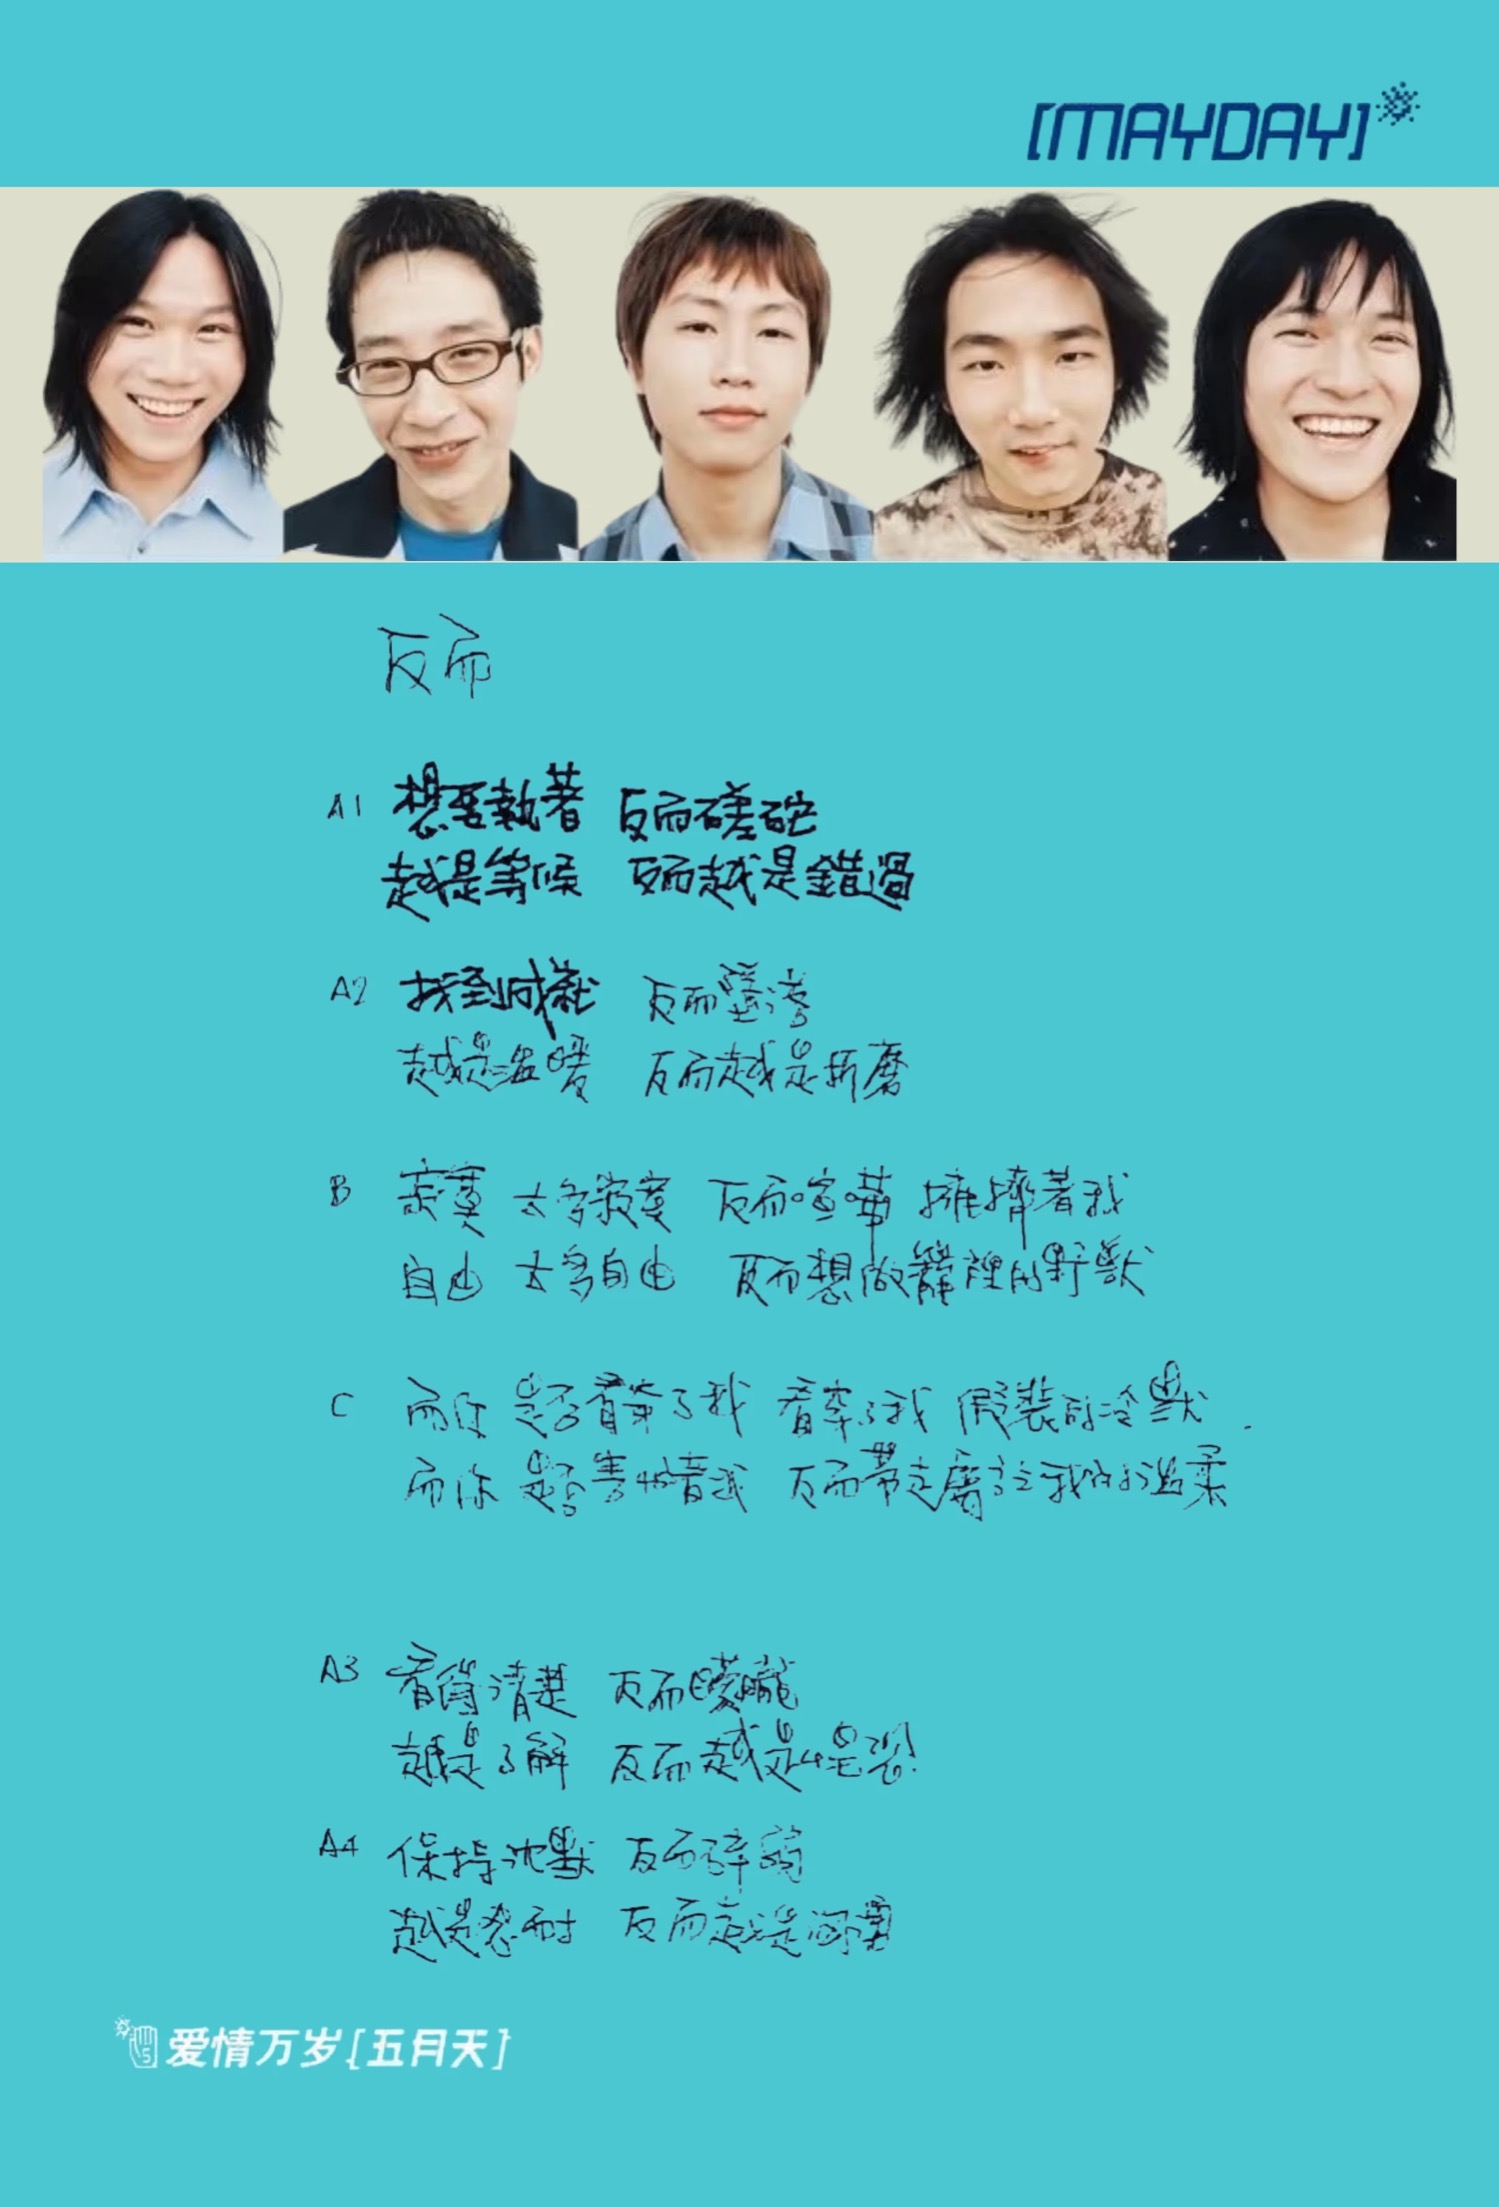 [MAYDAY]
反而
A1 想要執著 反而蹉跎
越是等候 反而越是錯過
A2 找到成就 反而墮落
越是溫暖 反而越是折磨
B 寂寞 太多寂寞 反而喧嘩 擁擠著我
自由 太多自由 反而想做籠裡的野獸
C 而你 是否看穿了我 看穿了我 假裝的冷默
而你 是否害怕著我 反而帶走屬於我的溫柔
A3 看得清楚 反而朦朧
越是了解 反而越是
A4 保持沈默 反而碎
越是忍耐 反而越是
5
爱情万岁[五月天]